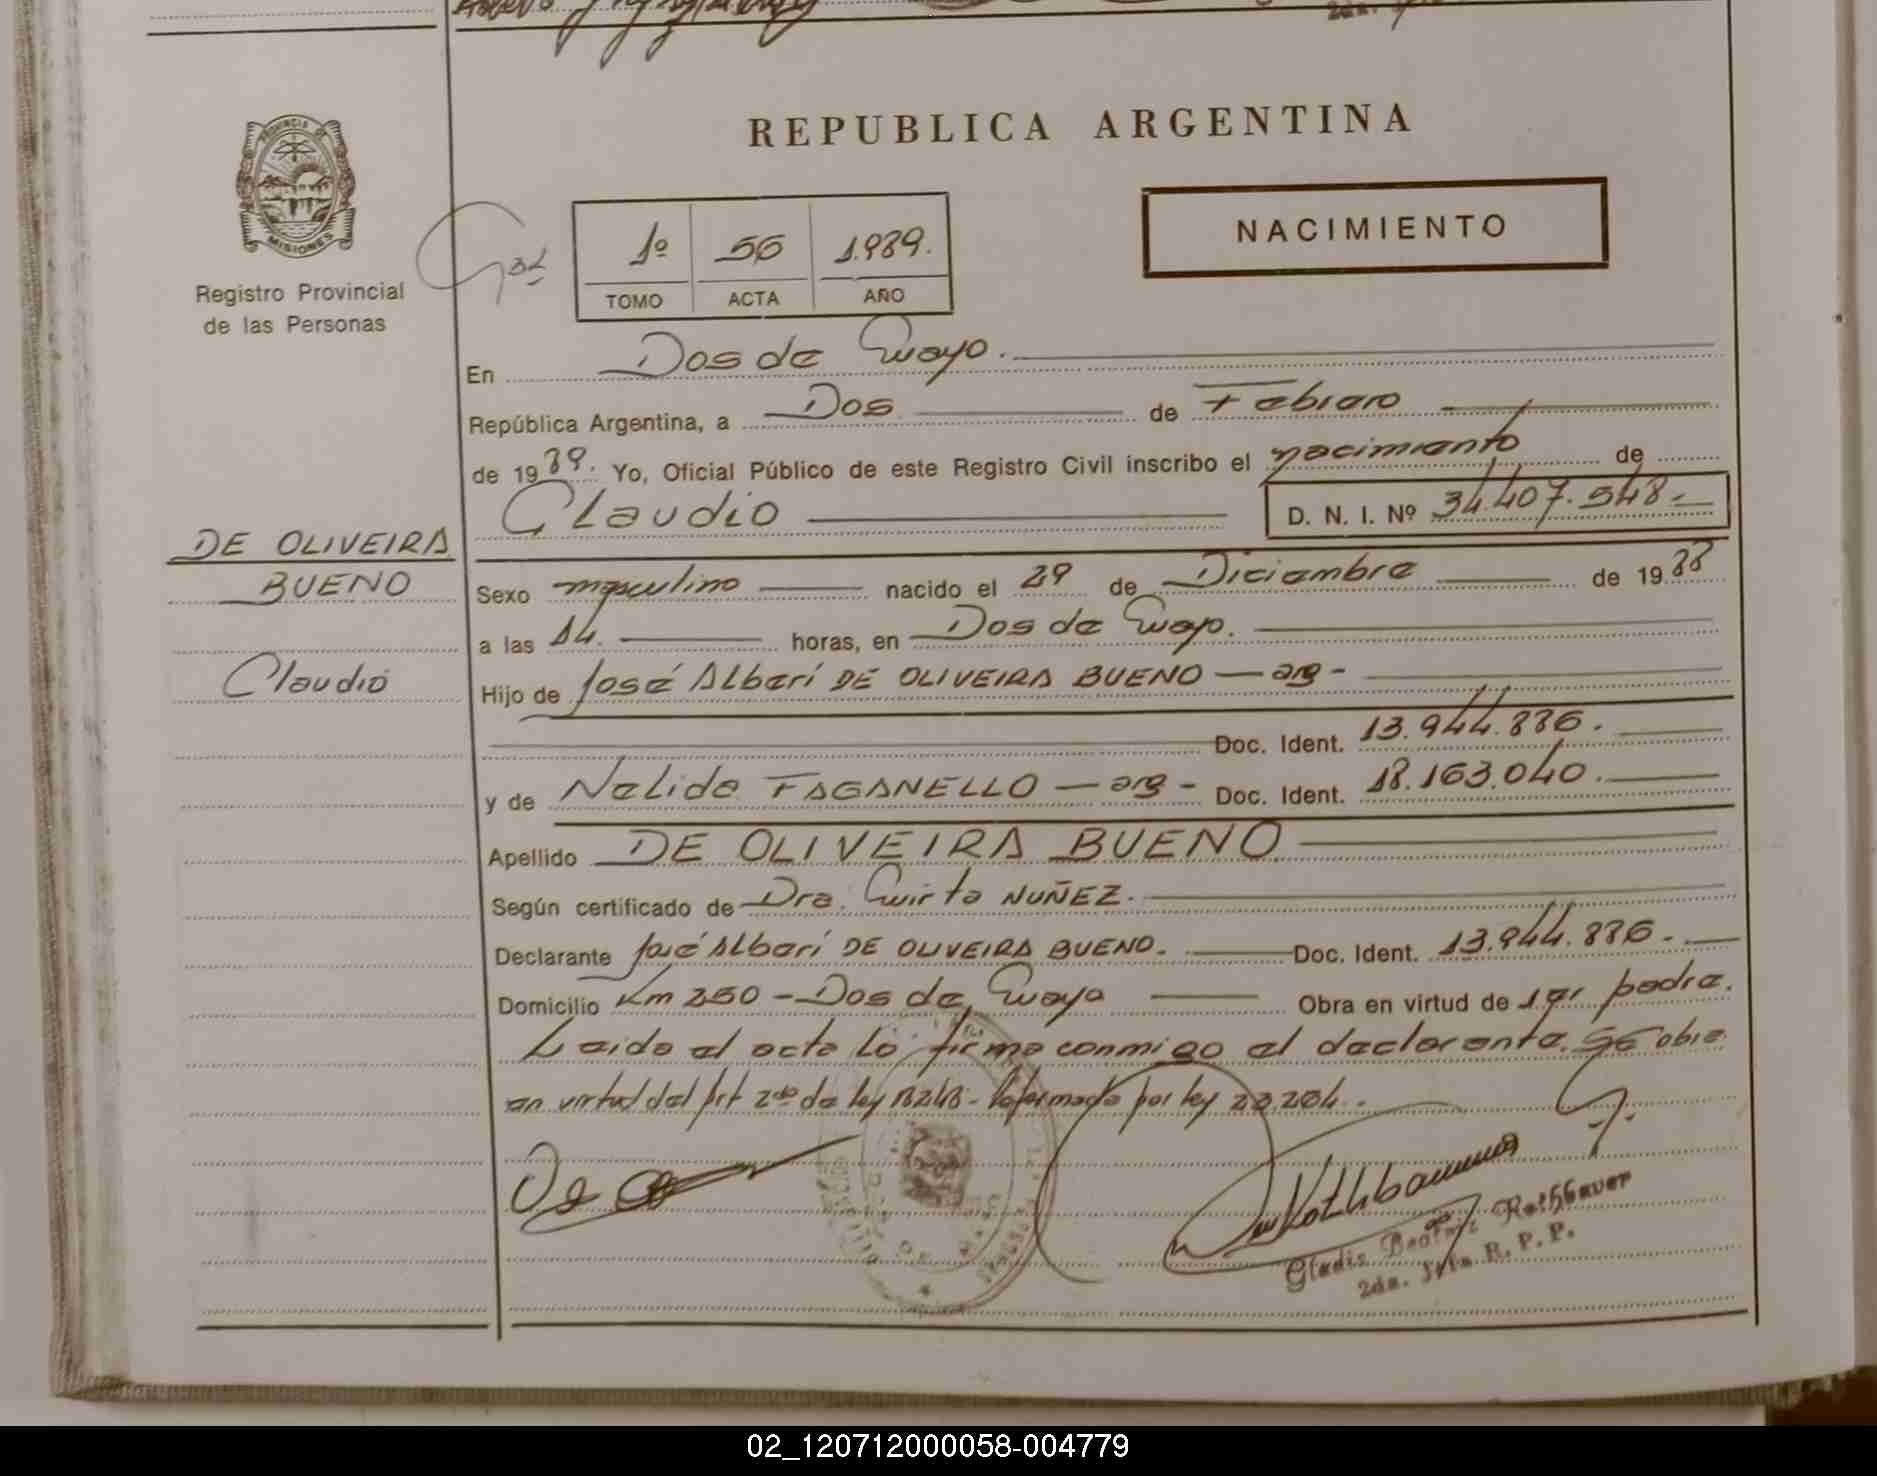 REPUBLICA ARGENTINA
PROVINCIA DE
MISIONES
Registro Provincial
de las Personas
NACIMIENTO
1º 56 1.989.
TOMO ACTA AÑO
En Dos de Mayo.
República Argentina, a Dos de Febrero
de 1989. Yo, Oficial Público de este Registro Civil inscribo el nacimiento de
Claudio D. N. I. Nº 34.407.548.-
DE OLIVEIRA
BUENO
Claudio
Sexo masculino nacido el 29 de Diciembre de 1988
a las 14. horas, en Dos de Mayo.
Hijo de José Alberí DE OLIVEIRA BUENO — arg -
Doc. Ident. 13.944.886.
y de Nelida FAGANELLO — arg - Doc. Ident. 18.163.040.
Apellido DE OLIVEIRA BUENO
Según certificado de Dra. Mirta NUÑEZ.
Declarante José Alberí DE OLIVEIRA BUENO. Doc. Ident. 13.944.886.
Domicilio Km 250 - Dos de Mayo Obra en virtud de ser padre.
Leida el acta lo firma conmigo el declarante. Se obra
en virtud del Art 2do de ley 18248 - Reformada por ley 23.264.
Gladis Beatriz Rothbauer
2da. Jefa R. P. P.
02_120712000058-004779